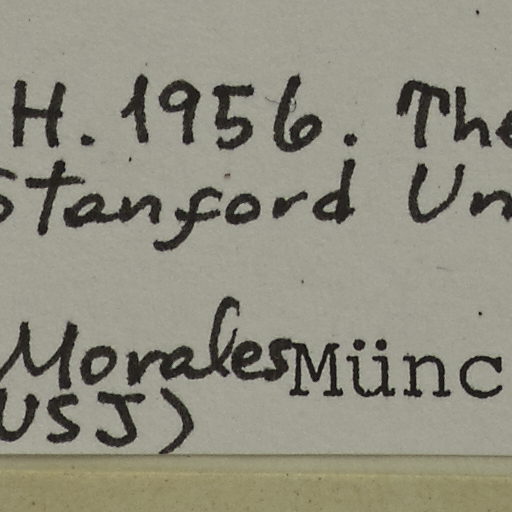 H. 1956. The
Stanford Un
Morales Münc
USJ)